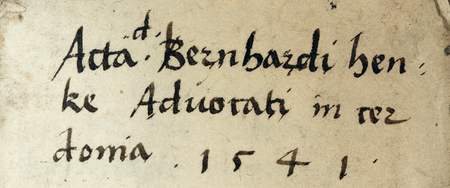 Acta d. Bernhardi hen:
ke Advocati in cer
donia . 1541.